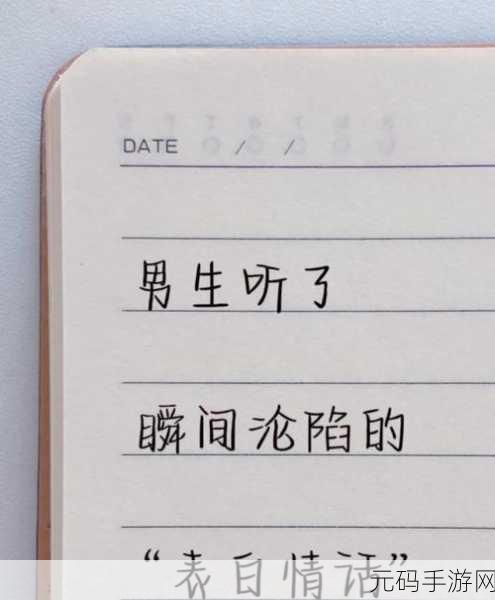 DATE / /
男生听了
瞬间沦陷的
“表白情话”
元码手游网